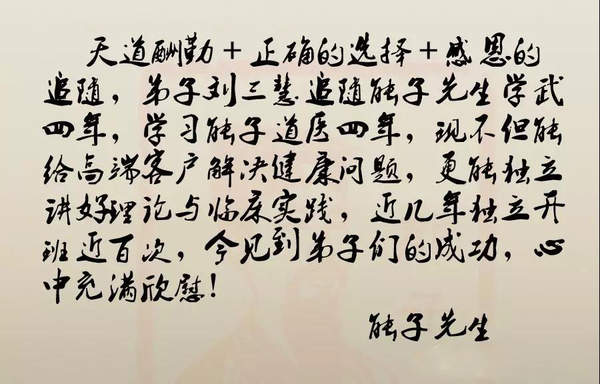 天道酬勤+正确的选择+感恩的
追随，弟子刘三慧追随能子先生学武
四年，学习能子道医四年，现不但能
给高端客户解决健康问题，更能独立
讲好理论与临床实践，近几年独立开
班近百次，今见到弟子们的成功，心
中充满欣慰！
能子先生